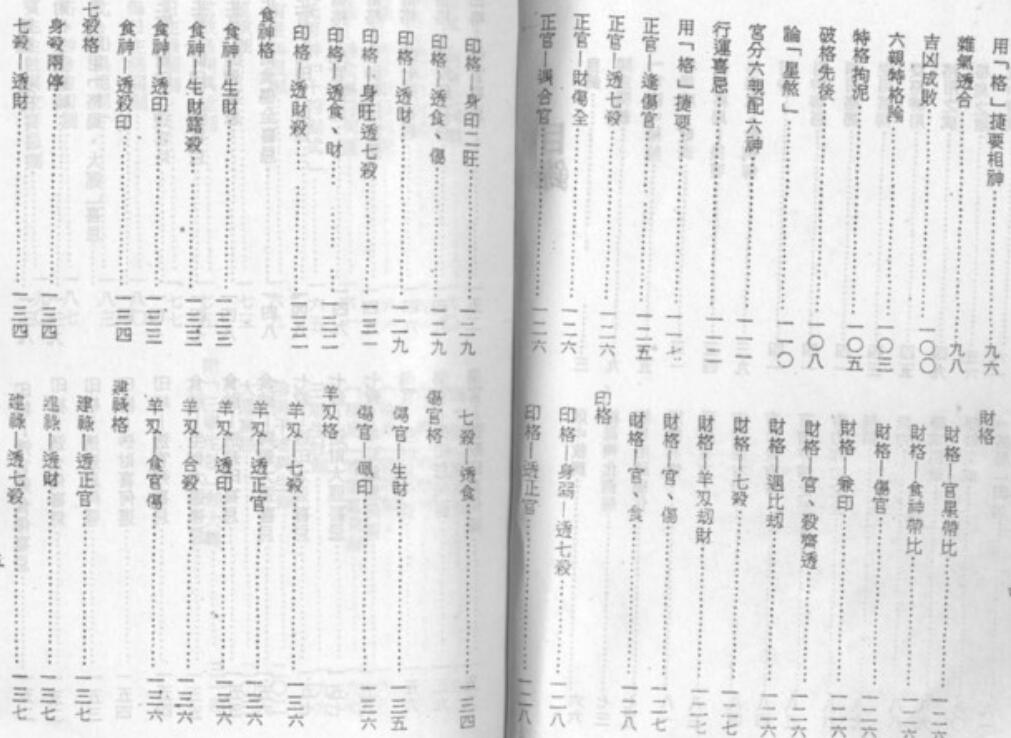 用「格」捷要相神……九六
雜氣透合……九八
吉凶成敗……一〇〇
六親特格論……一〇三
特格拘泥……一〇五
破格先後……一〇八
論「星煞」……一一〇
宮分六親配六神……一一一
行運喜忌……一一二
用「格」捷要……一一七
正官—逢傷官……一二五
正官—透七殺……一二六
正官—財傷全……一二六
正官—遇合官……一二六
財格
財格—官星帶比……一二六
財格—食神帶比……一二六
財格—傷官……一二六
財格—兼印……一二六
財格—官、殺齊透……一二六
財格—遇比刧……一二六
財格—七殺……一二七
財格—羊刄刧財……一二七
財格—官、傷……一二七
財格—官、食……一二八
印格
印格—身弱—透七殺……一二八
印格—透正官……一二八
印格—身印二旺……一二九
印格—透食、傷……一二九
印格—透財……一二九
印格—身旺透七殺……一三一
印格—透食、財……一三二
印格—透財殺……一三二
食神格
食神—生財……一三三
食神—生財露殺……一三三
食神—透印……一三三
食神—透殺印……一三四
七殺格
身殺兩停……一三四
七殺—透財……一三四
七殺—透食……一三四
傷官格
傷官—生財……一三五
傷官—佩印……一三六
羊刄格
羊刄—七殺……一三六
羊刄—透正官……一三六
羊刄—透印……一三六
羊刄—合殺……一三六
羊刄—食官傷……一三六
建祿格
建祿—透正官……一三七
建祿—透財……一三七
建祿—透七殺……一三七